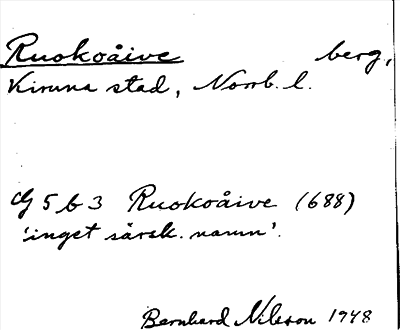 Ruokoåive berg,
Kiruna stad, Norrb. l.
G 5 b 3 Ruokoåive (688)
'inget särsk. namn'.
Bernhard Nilsson 1948